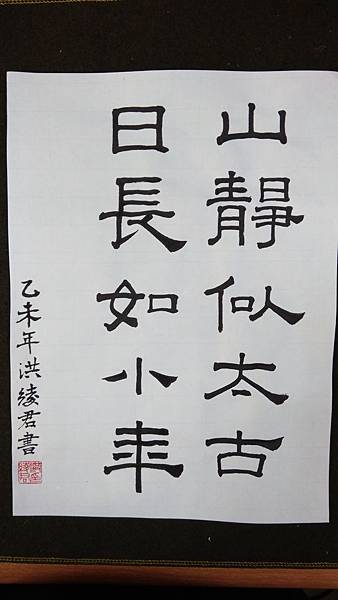 山靜似太古
日長如小年
乙未年洪綾君書